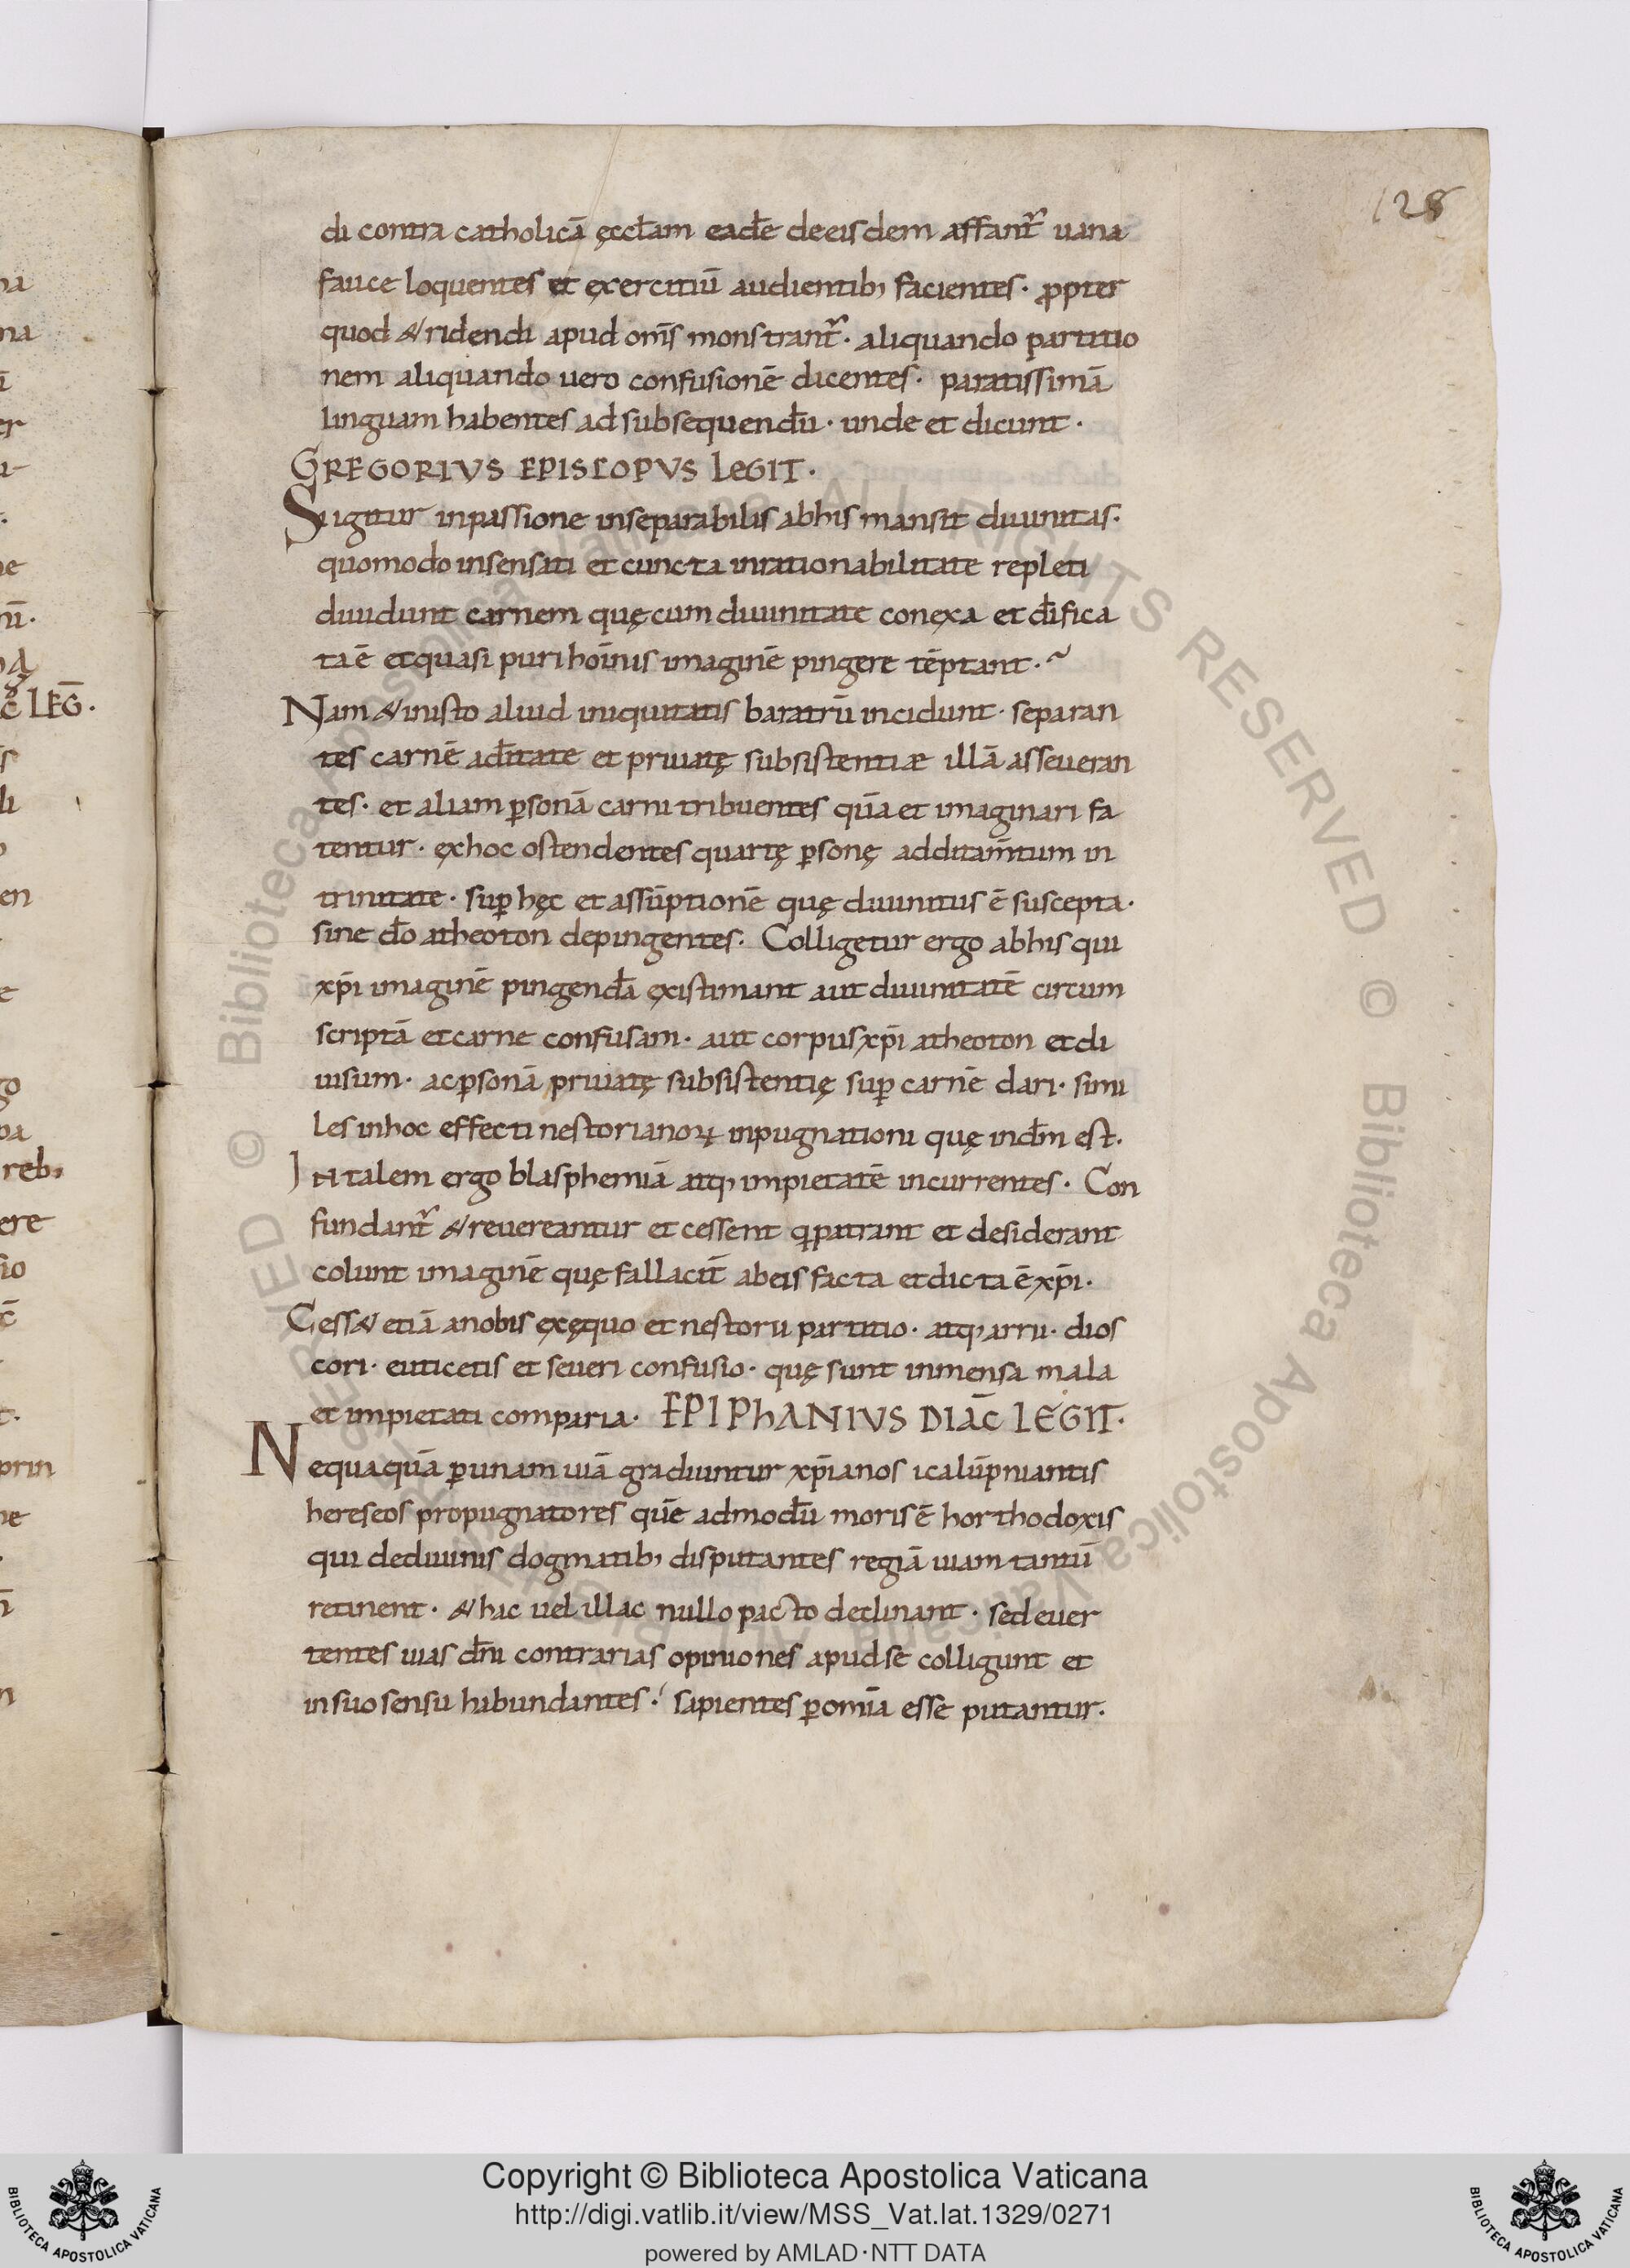 128
di contra catholicā ęccłam eadē deeisdem affant᷑ uana
fauce loquentes et exercitiū audientib; facientes · ꝓpter
quod & ridendi apud om̄s monstrant᷑ · aliquando partitio
nem aliquando uero confusionē dicentes · paratissimā
linguam habentes ad subsequendū · unde et dicunt ·
GREGORIVS EPISCOPVS LEGIT ·
Si igitur inpassione inseparabilis abhis mansit diuinitas ·
quomodo insensati et cuncta inrationabilitate repleti
diuidunt carnem quę cum diuinitate conexa et dīfica
ta ē et quasi puri hoīnis imaginē pingere tēptant ·
Nam & inisto aliud iniquitatis baratrū incidunt · separan
tes carnē adītate et priuatę subsistentiæ illā asseueran
tes · et aliam ꝑsonā carni tribuentes quā et imaginari fa
tentur · exhoc ostendentes quartę ꝑsonę additam̄tum in
trinitate · suꝑ hęc et assūptionē quę diuinitus ē suscepta ·
sine dō atheoton depingentes · Colligetur ergo abhis qui
xp̄i imaginē pingendā existimant aut diuinitatē circum
scriptā et carne confusam · aut corpus xp̄i atheoton et di
uisum · ac ꝑsonā priuatę subsistentię suꝑ carnē dari · simi
les inhoc effecti nestorianoꝝ inpugnationi quę indm̄ est ·
IN talem ergo blasphemiā atq; impietatē incurrentes · Con
fundant᷑ & reuereantur et cessent qui patrant et desiderant
colunt imaginē quę fallacit̄ abeis facta et dicta ē xp̄i ·
Cess& etiā anobis exęquo et nestorii partitio · atq; arrii · dios
cori · euticetis et seueri confusio · quę sunt inmensa mala
et impietati comparia · EPIPHANIVS DIAC̄ LEGIT ·
Nequaquā ꝑ unam uiā gradiuntur xp̄ianos icalūpniantis
hereseos propugnatores quē admodū moris ē horthodoxis
qui dediuinis dogmatib; disputantes regiā uiam tantū
retinent · & hac uel illac nullo pacto declinant · sed euer
tentes uias dn̄i contrarias opiniones apud se colligunt et
insuo sensu habundantes · sapientes ꝑ omīa esse putantur ·
Copyright © Biblioteca Apostolica Vaticana
http://digi.vatlib.it/view/MSS_Vat.lat.1329/0271
powered by AMLAD·NTT DATA